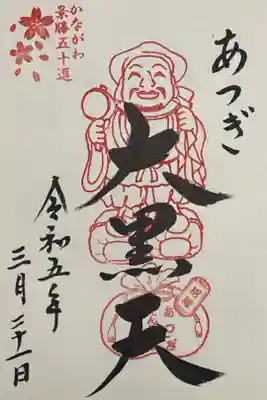 かながわ
景勝五十選
あつぎ
大黒天
令和五年
三月二十一日